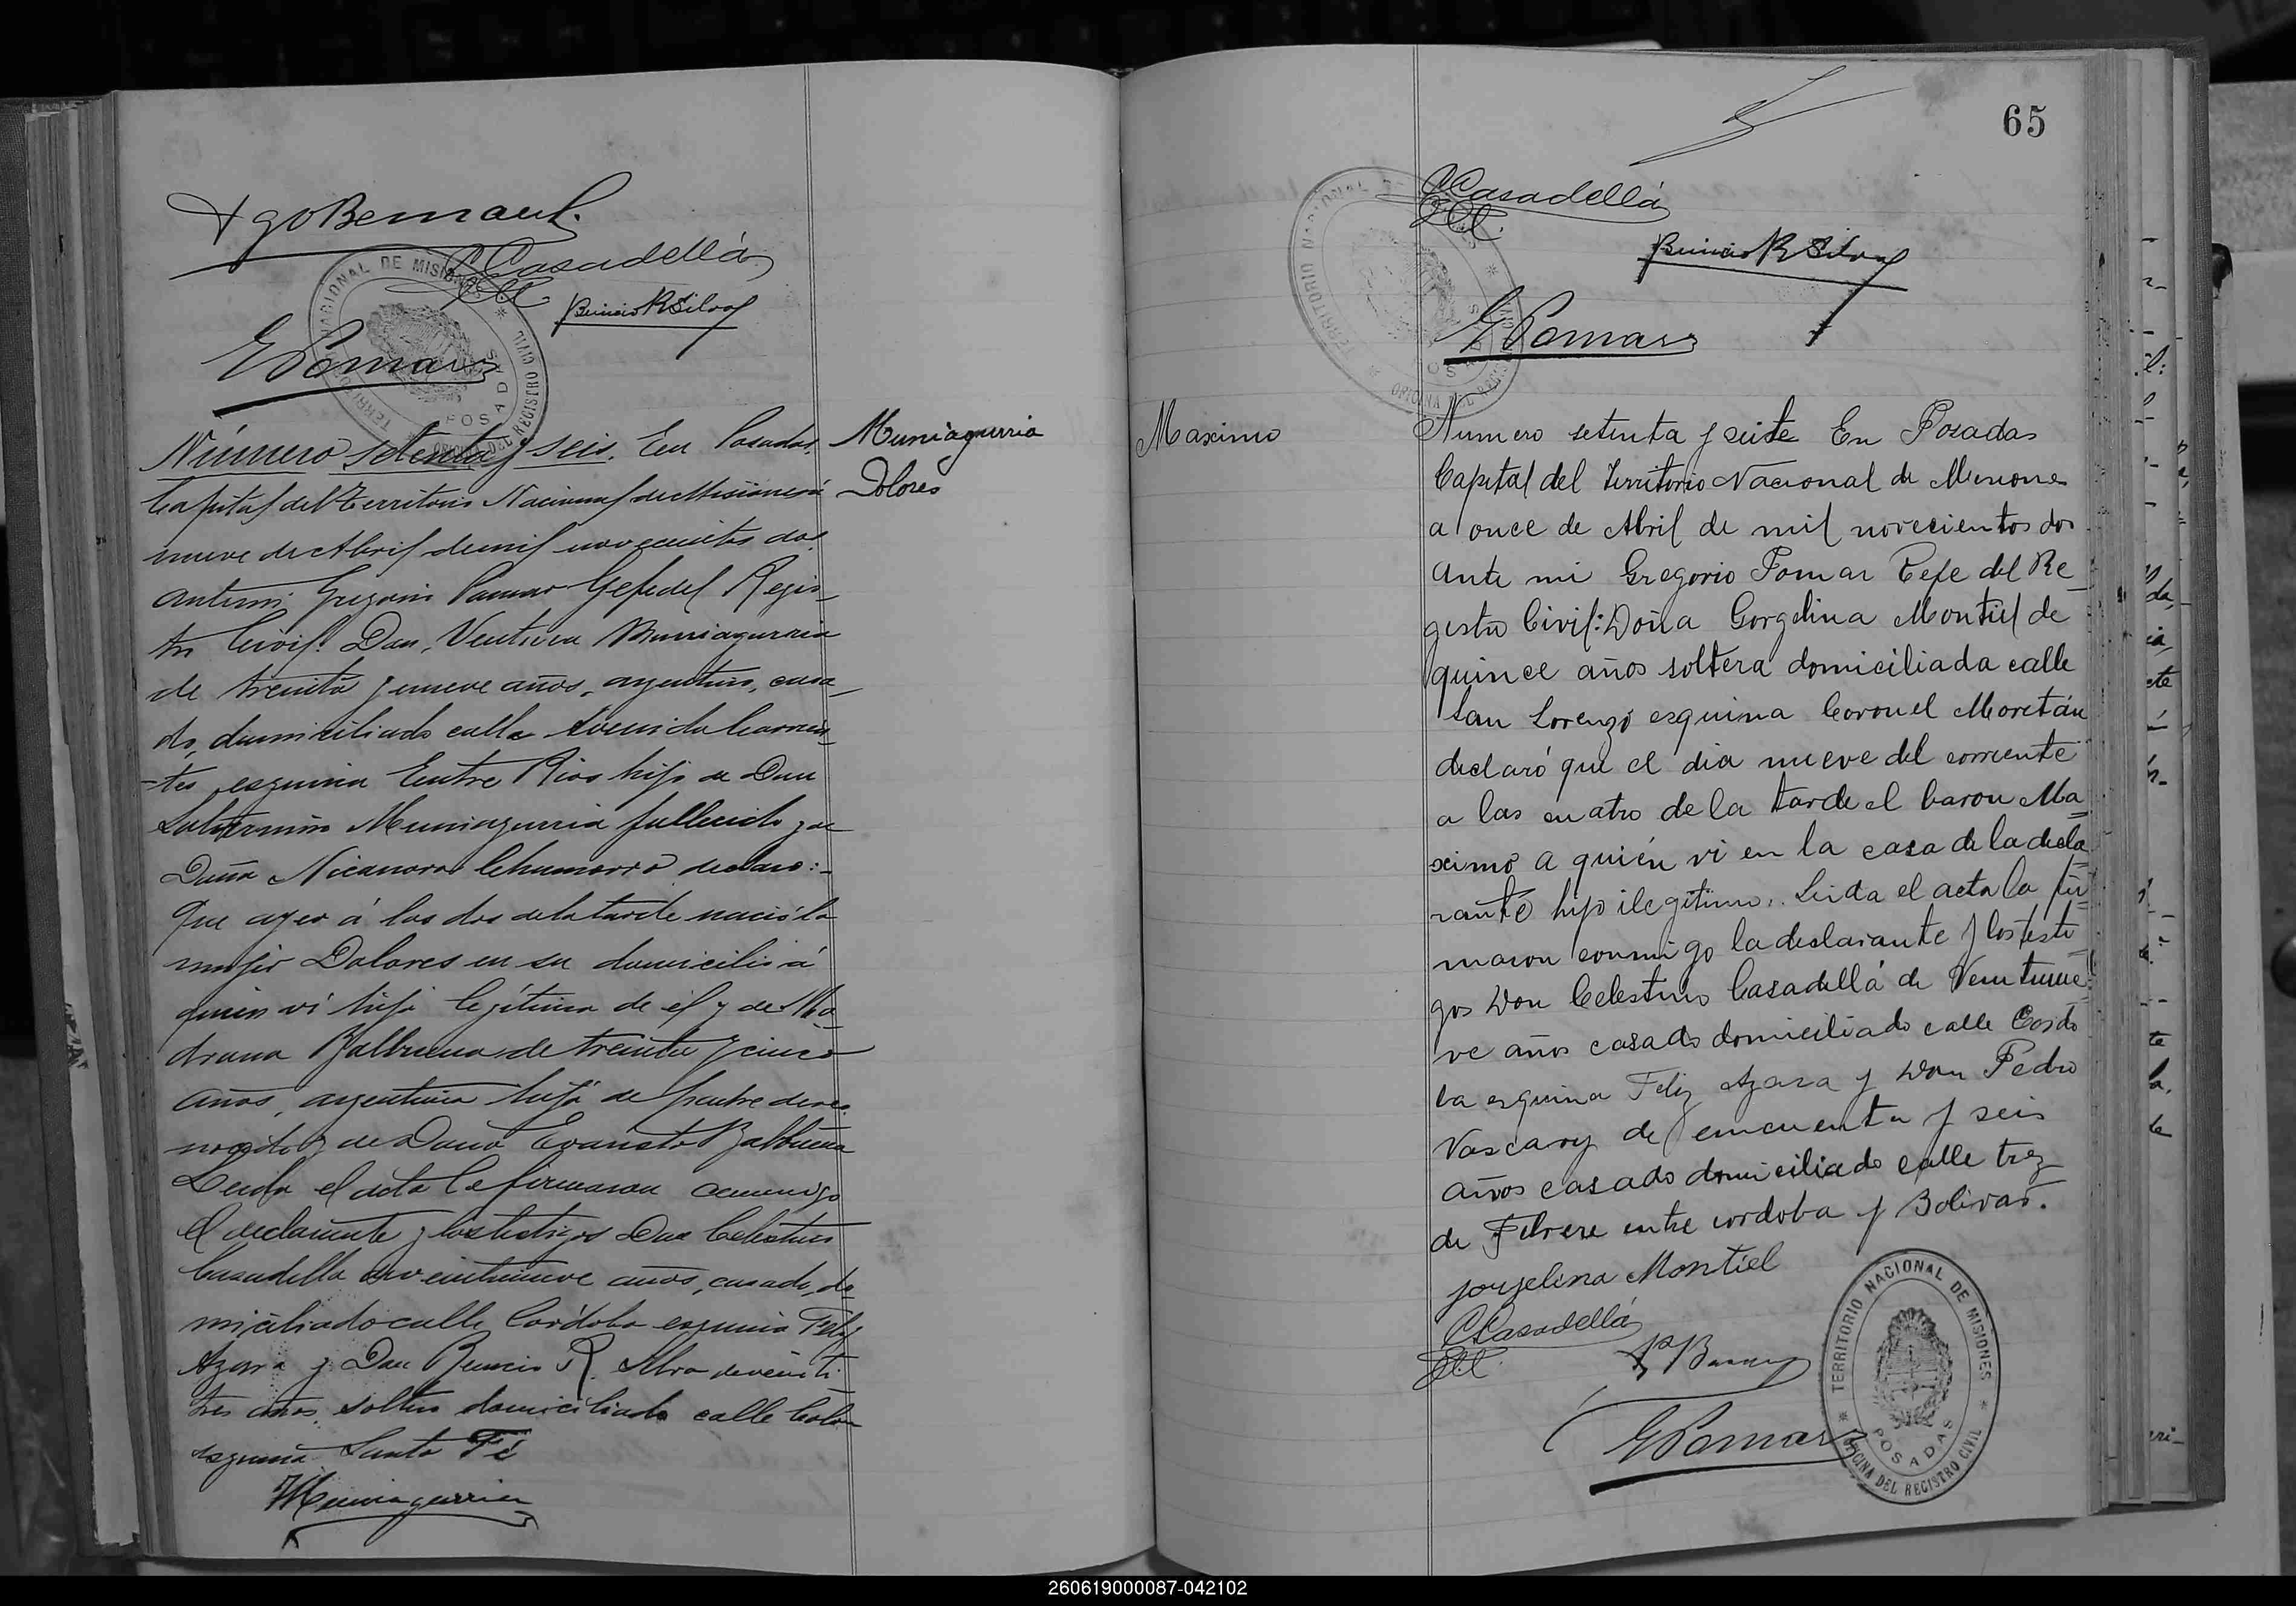 YgoBernaul.
CCasadellá
Benicio R Silva
GPomar
TERRITORIO NACIONAL DE MISIONES
OFICINA DEL REGISTRO CIVIL
POSADAS
Número setenta y seis. En Posadas,
Capital del Territorio Nacional de Misiones á
nueve de Abril de mil novecientos dos
ante mi Gregorio Pomar Gefe del Regis-
tro Civil: Don, Ventura Muniagurria
de treinta y nueve años, argentino, casa-
do, domiciliado calle Avenida Corrien-
-tes esquina Entre Rios hijo de Don
Saturnino Muniagurria fallecido y de
Doña Nicanora Chamorro declaro:-
Que ayer á las dos de la tarde nació la
mujer Dolores en su domicilio á
quien vi hija legítima de él y de
Balbuena de treinta y cinco
años, argentina hija de padre desco-
nocido y de Doña Evarista Balbuena
Leida el acta la firmaron conmigo
el declarante y los testigos Don Celestino
Casadella de veintinueve años, casado, do-
miciliado calle Córdoba esquina Felix
Azara y Don Benicio R. Silva de veinti-
tres años, soltero domiciliado calle Colon
esquina Santa Fé
Muniagurria
Muniagurria
Dolores
65
CCasadellá
Benicio R Silva
GPomar
TERRITORIO NACIONAL DE
OFICINA DEL REGISTRO
POSADAS
Maximo
Numero setenta y seite En Posadas
Capital del Territorio Nacional de Misiones
a once de Abril de mil novecientos dos
ante mi Gregorio Pomar Gefe del Re-
gistro Civil: Doña Gorgelina Montiel de
quince años soltera domiciliada calle
San Lorenzo esquina Coronel Moretán
declaró que el dia nueve del corriente
a las cuatro de la tarde el baron Ma-
ximo a quién vi en la casa de la decla-
rante hijo ilegitimo. Leida el acta la fir-
maron conmigo la declarante y los testi-
gos Don Celestino Casadellá de Veintinue-
ve años casado domiciliado calle Cordo-
ba esquina Feliz Azara y Don Pedro
Vascary de cincuenta y seis
años casado domiciliado calle trez
de Febrero entre cordoba y Bolivar.
jorjelina Montiel
CCasadellá
GPomar
TERRITORIO NACIONAL DE MISIONES
OFICINA DEL REGISTRO CIVIL
POSADAS
260619000087-042102